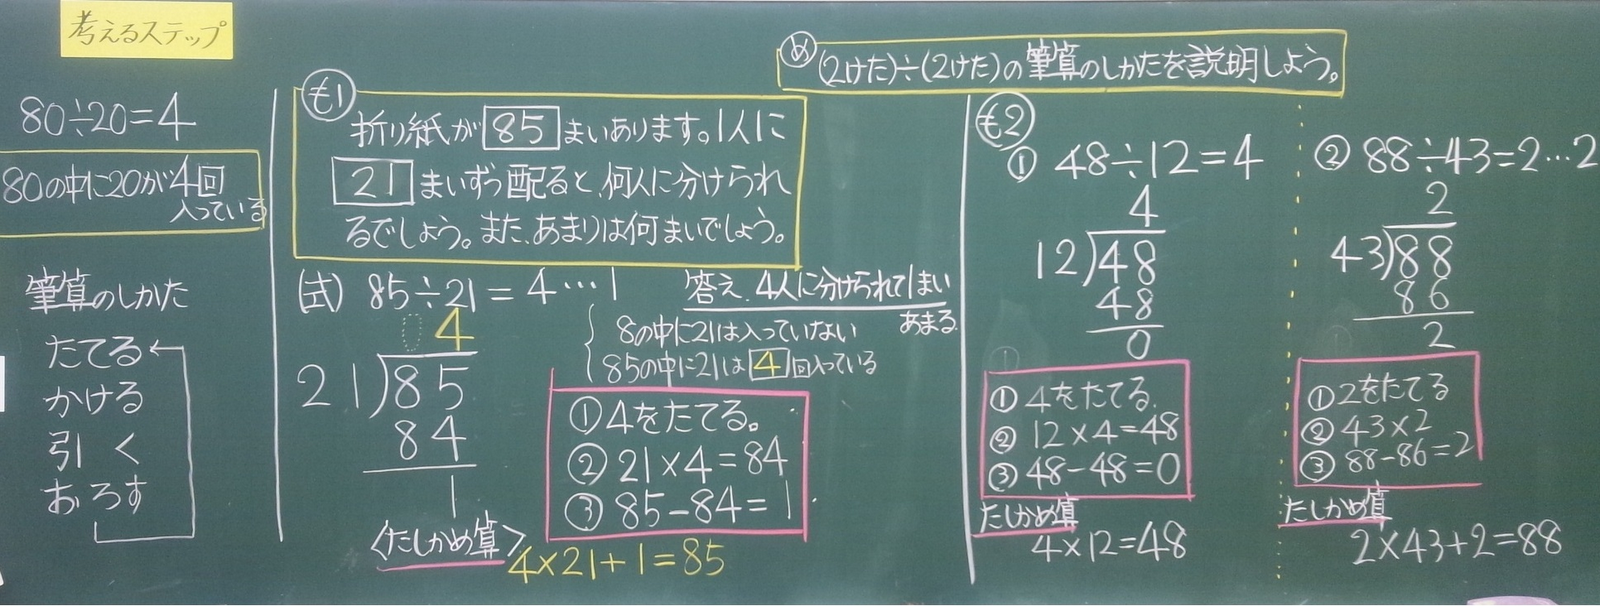 考えるステップ
80÷20=4
80の中に20が4回
入っている
筆算のしかた
たてる
かける
引く
おろす
め (2けた)÷(2けた)の筆算のしかたを説明しよう。
も1
折り紙が85まいあります。1人に
21まいずつ配ると、何人に分けられ
るでしょう。また、あまりは何まいでしょう。
(式) 85÷21=4…1
答え、4人に分けられて1まい
あまる
8の中に21は入っていない
85の中に21は4回入っている
0 4
21)85
84
1
①4をたてる。
②21×4=84
③85-84=1
〈たしかめ算〉
4×21+1=85
も2
① 48÷12=4
4
12)48
48
0
①4をたてる.
②12×4=48
③48-48=0
たしかめ算
4×12=48
② 88÷43=2…2
2
43)88
86
2
①2をたてる
②43×2
③88-86=2
たしかめ算
2×43+2=88